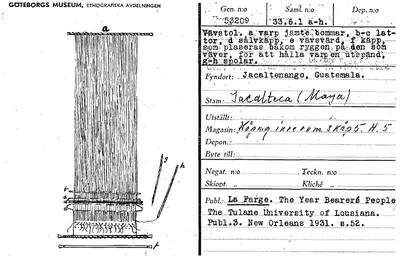 GÖTEBORGS MUSEUM, ETNOGRAFISKA AVDELNINGEN
a
b
c
d
e
g
h
f
Gen. n:o
Saml. n:o
Dep. n:o
53209
33.6.1 a-h.
Vävstol. a varp jämte bommar, b-c lat-
tor, d sälvkäpp, e vävsvärd, f käpp,
som placeras bakom ryggen på den som
väver, för att hålla varpen utspänd,
g-h spolar.
Fyndort: Jacaltenango, Guatemala.
Stam: Jacalteca (Maya)
Utställt:
Magasin: inre rum skåp 5. H. 5
Depon.:
Byte till:
Negat. n:o
Teckn. n:o
Skiopt. „
Kliché „
Publ.: La Farge. The Year Bearers People
The Tulane University of Lousiana.
Publ.3. New Orleans 1931. s.52.